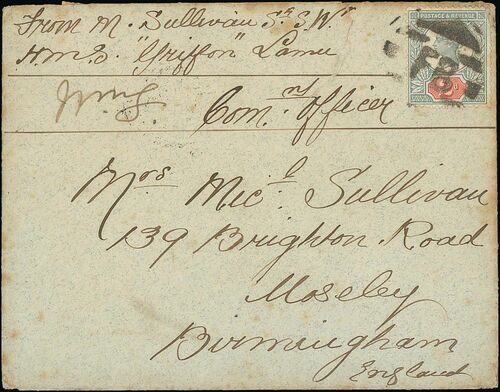 From M. Sullivan
H.M.S. "Griffon" Lamu
Com.ng Officer
Mrs Micl Sullivan
139 Brighton Road
Moseley
Birmingham
England
POSTAGE & REVENUE